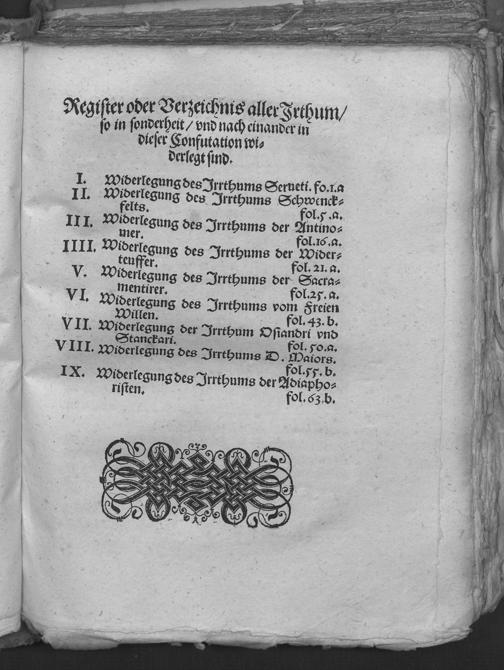 Register oder Verzeichnis aller Irthum/
so in sonderheit/ vnd nach einander in
dieser Confutation wi-
derlegt sind.
I. Widerlegung des Irrthums Serueti. fo.1.a
II. Widerlegung des Irrthums Schwenck-
felts. fol.5.a.
III. Widerlegung des Irrthums der Antino-
mer. fol.16.a.
IIII. Widerlegung des Irrthums der Wider-
teuffer. fol. 21. a.
V. Widerlegung des Irrthums der Sacra-
mentirer. fol.25.a.
VI. Widerlegung des Irrthums vom Freien
Willen. fol. 43. b.
VII. Widerlegung der Irrthum Osiandri vnd
Stanckari. fol. 50.a.
VIII. Widerlegung des Irrthums D. Maiors.
fol.55.b.
IX. Widerlegung des Irrthums der Adiapho-
risten. fol.63.b.